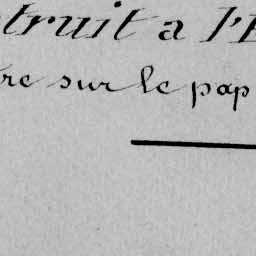 truit a l'E
re sur le pap